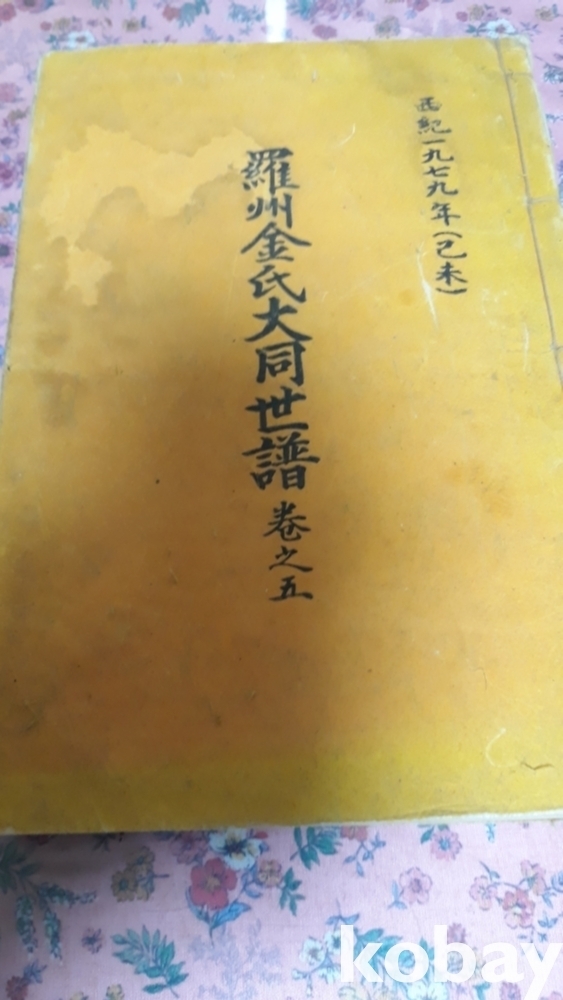 西紀一九七九年(己未)
羅州金氏大同世譜 卷之五
kobay